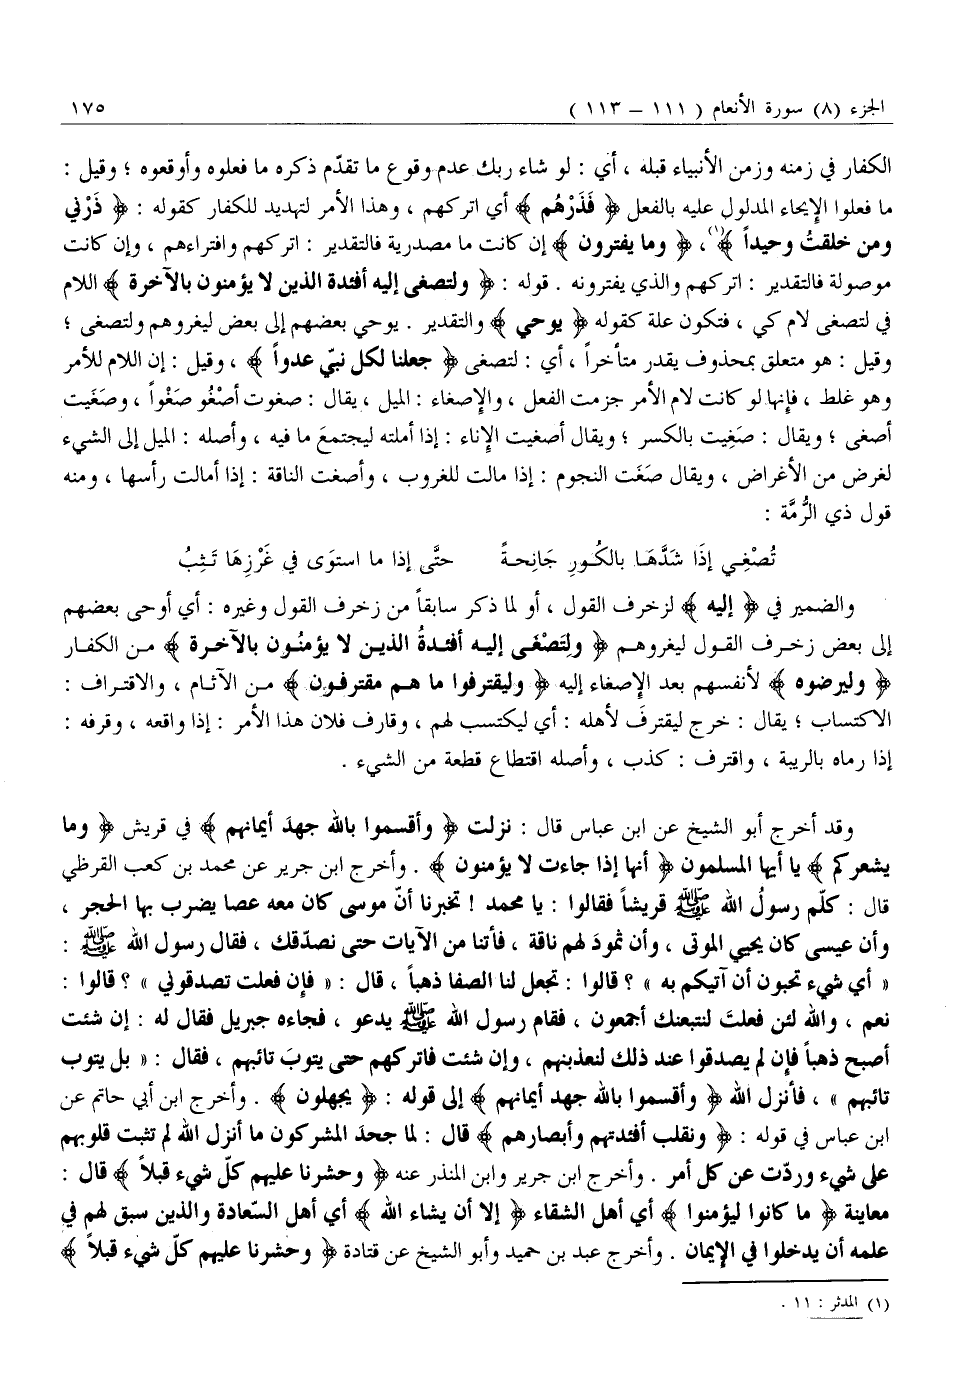 الجزء (٨) سورة الأنعام ( ١١١ – ١١٣ ) ١٧٥
الكفار في زمنه وزمن الأنبياء قبله ، أي : لو شاء ربك عدم وقوع ما تقدّم ذكره ما فعلوه وأوقعوه ؛ وقيل :
ما فعلوا الإيحاء المدلول عليه بالفعل ﴿ فَذَرْهُم ﴾ أي اتركهم ، وهذا الأمر لتهديد للكفار كقوله : ﴿ ذَرْني
ومن خلقتُ وحيداً ﴾(١)، ﴿ وما يفترون ﴾ إن كانت ما مصدرية فالتقدير : اتركهم وافتراءهم ، وإن كانت
موصولة فالتقدير : اتركهم والذي يفترونه . قوله : ﴿ ولتصغى إليه أفئدة الذين لا يؤمنون بالآخرة ﴾ اللام
في لتصغى لام كي ، فتكون علة كقوله ﴿ يوحي ﴾ والتقدير . يوحي بعضهم إلى بعض ليغروهم ولتصغى ؛
وقيل : هو متعلق بمحذوف يقدر متأخراً ، أي : لتصغى ﴿ جعلنا لكل نبيّ عدواً ﴾ ، وقيل : إن اللام للأمر
وهو غلط ، فإنها لو كانت لام الأمر جزمت الفعل ، والإصغاء : الميل ، يقال : صغوت أصْغُو صَغْواً ، وصَغَيت
أصغى ؛ ويقال : صَغِيت بالكسر ؛ ويقال أصغيت الإناء : إذا أملته ليجتمعَ ما فيه ، وأصله : الميل إلى الشيء
لغرض من الأغراض ، ويقال صَغَت النجوم : إذا مالت للغروب ، وأصغت الناقة : إذا أمالت رأسها ، ومنه
قول ذي الرُّمَّة :
تُصْغِي إذَا شَدَّهَا بالكُورِ جَانِحةً حتَّى إذا ما استوَى في غَرْزِهَا تَثِبُ
والضمير في ﴿ إليه ﴾ لزخرف القول ، أو لما ذكر سابقاً من زخرف القول وغيره : أي أوحى بعضهم
إلى بعض زخرف القول ليغروهم ﴿ ولِتَصْغَى إليه أفئدةُ الذين لا يؤمنُون بالآخرة ﴾ من الكفار
﴿ وليرضوه ﴾ لأنفسهم بعد الإصغاء إليه ﴿ وليقترفوا ما هم مقترفون ﴾ من الآثام ، والاقتراف :
الاكتساب ؛ يقال : خرج ليقترفَ لأهله : أي ليكتسب لهم ، وقارف فلان هذا الأمر : إذا واقعه ، وقرفه :
إذا رماه بالريبة ، واقترف : كذب ، وأصله اقتطاع قطعة من الشيء .
وقد أخرج أبو الشيخ عن ابن عباس قال : نزلت ﴿ وأقسموا بالله جهدَ أيمانهم ﴾ في قريش ﴿ وما
يشعركم ﴾ يا أيها المسلمون ﴿ أنها إذا جاءت لا يؤمنون ﴾ . وأخرج ابن جرير عن محمد بن كعب القرظي
قال : كلّم رسولُ الله ﷺ قريشاً فقالوا : يا محمد ! تخبرنا أنّ موسى كان معه عصا يضرب بها الحجر ،
وأن عيسى كان يحيي الموتى ، وأن ثمودَ لهم ناقة ، فأتنا من الآيات حتى نصدّقك ، فقال رسول الله ﷺ :
« أي شيء تحبون أن آتيكم به » ؟ قالوا : تجعل لنا الصفا ذهباً ، قال : « فإن فعلت تصدقوني » ؟ قالوا :
نعم ، والله لئن فعلتَ لنتبعنك أجمعون ، فقام رسول الله ﷺ يدعو ، فجاءه جبريل فقال له : إن شئت
أصبح ذهباً فإن لم يصدقوا عند ذلك لنعذبنهم ، وإن شئت فاتركهم حتى يتوبَ تائبهم ، فقال : « بل يتوب
تائبهم » ، فأنزل الله ﴿ وأقسموا بالله جهد أيمانهم ﴾ إلى قوله : ﴿ يجهلون ﴾ . وأخرج ابن أبي حاتم عن
ابن عباس في قوله : ﴿ ونقلب أفئدتهم وأبصارهم ﴾ قال : لما جحدَ المشركون ما أنزل الله لم تثبت قلوبهم
على شيء وردّت عن كل أمر . وأخرج ابن جرير وابن المنذر عنه ﴿ وحشرنا عليهم كلّ شيء قبلاً ﴾ قال :
معاينة ﴿ ما كانوا ليؤمنوا ﴾ أي أهل الشقاء ﴿ إلا أن يشاء الله ﴾ أي أهل السّعادة والذين سبق لهم في
علمه أن يدخلوا في الإيمان . وأخرج عبد بن حميد وأبو الشيخ عن قتادة ﴿ وحشرنا عليهم كلّ شيء قبلاً ﴾
(١) المدثر : ١١ .